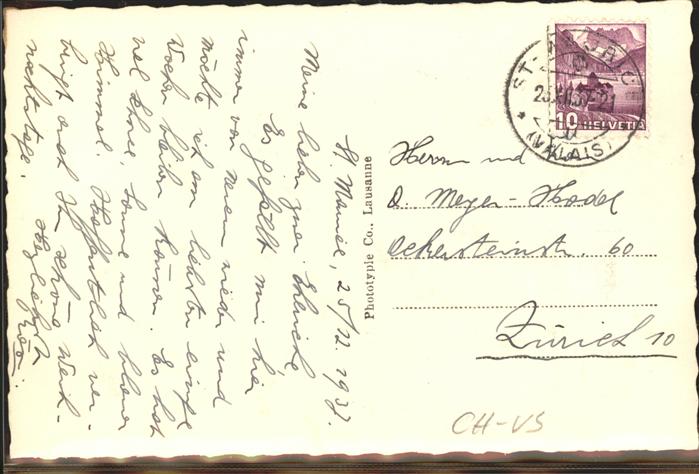 St. Maurice, 25/12. 1937.
Meine lieben zwei
Es gefällt mir hier
immer von neuem wieder und
möchte ich am liebsten einige
Wochen bleiben können. Es hat
viel Schnee, Sonne und blauer
Himmel. Hoffentlich ver-
bringt auch Ihr schöne Weih-
nachtstage.
Herzlichst
Phototypie Co., Lausanne
ST-MAURICE
25.XII.37-21
(VALAIS)
10 HELVETIA
Herrn und
O. Meyer-Hodel
Ackersteinstr. 60
Zürich 10
CH-VS